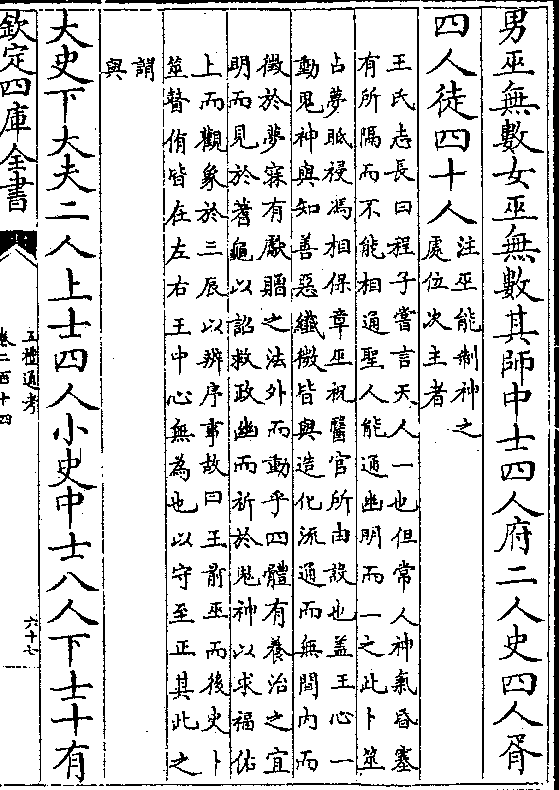 男巫無數女巫無數其師中士四人府二人史四人胥
四人徒四十人
注巫能制神之
處位次主者
王氏志長曰程子嘗言天人一也但常人神氣昏塞
有所隔而不能相通聖人能通幽明而一之此卜筮
占夢眡祲馮相保章巫祝醫官所由設也蓋王心一
動鬼神與知善惡纖微皆與造化流通而無間内而
徵於夢寐有獻贈之法外而動乎四體有養治之宜
明而見於蓍龜以詔救政幽而祈於鬼神以求福佑
上而觀象於三辰以辨序事故曰王前巫而後史卜
筮瞽侑皆在左右王中心無為也以守至正其此之
謂
與
大史下大夫二人上士四人小史中士八人下士十有
欽定四庫全書
五禮通考
卷二百十四
六十七